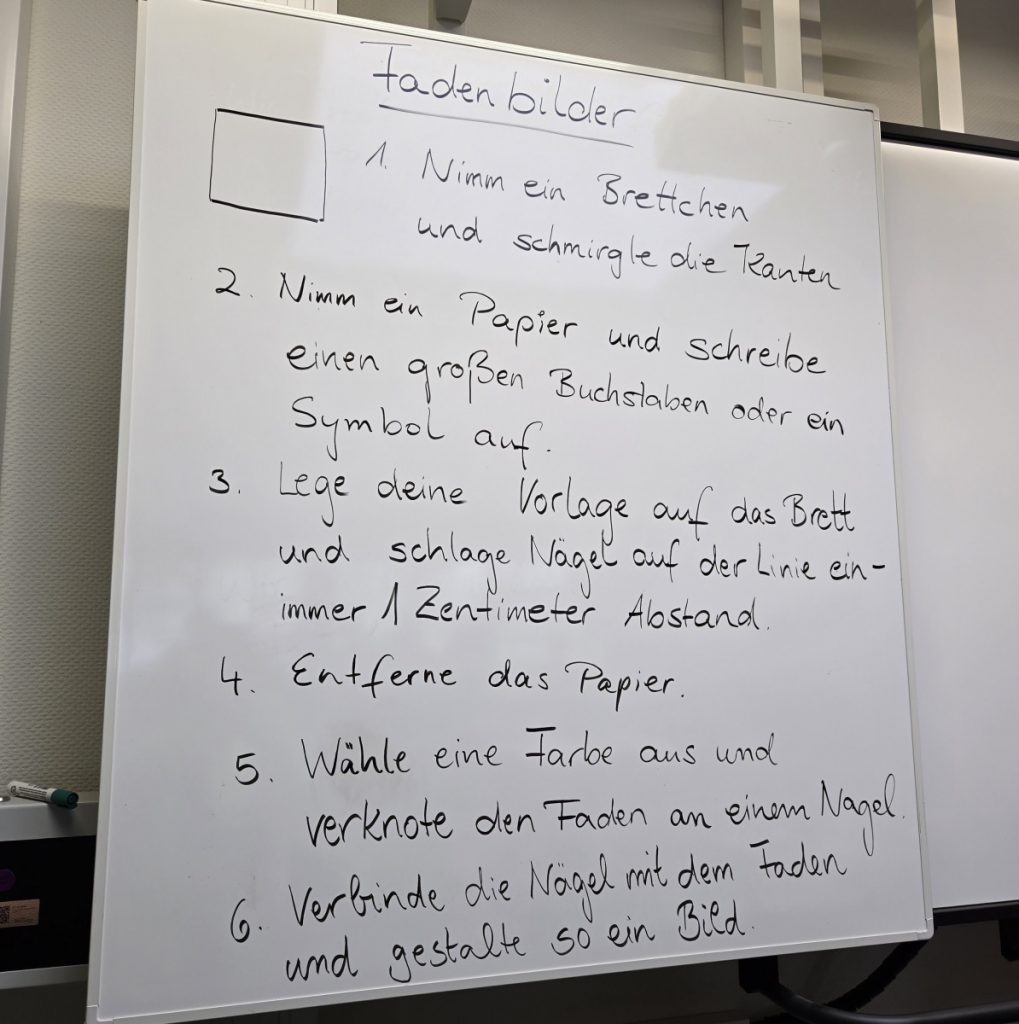 Fadenbilder
1. Nimm ein Brettchen
und schmirgle die Kanten
2. Nimm ein Papier und schreibe
einen großen Buchstaben oder ein
Symbol auf.
3. Lege deine Vorlage auf das Brett
und schlage Nägel auf der Linie ein-
immer 1 Zentimeter Abstand.
4. Entferne das Papier.
5. Wähle eine Farbe aus und
verknote den Faden an einem Nagel.
6. Verbinde die Nägel mit dem Faden
und gestalte so ein Bild.